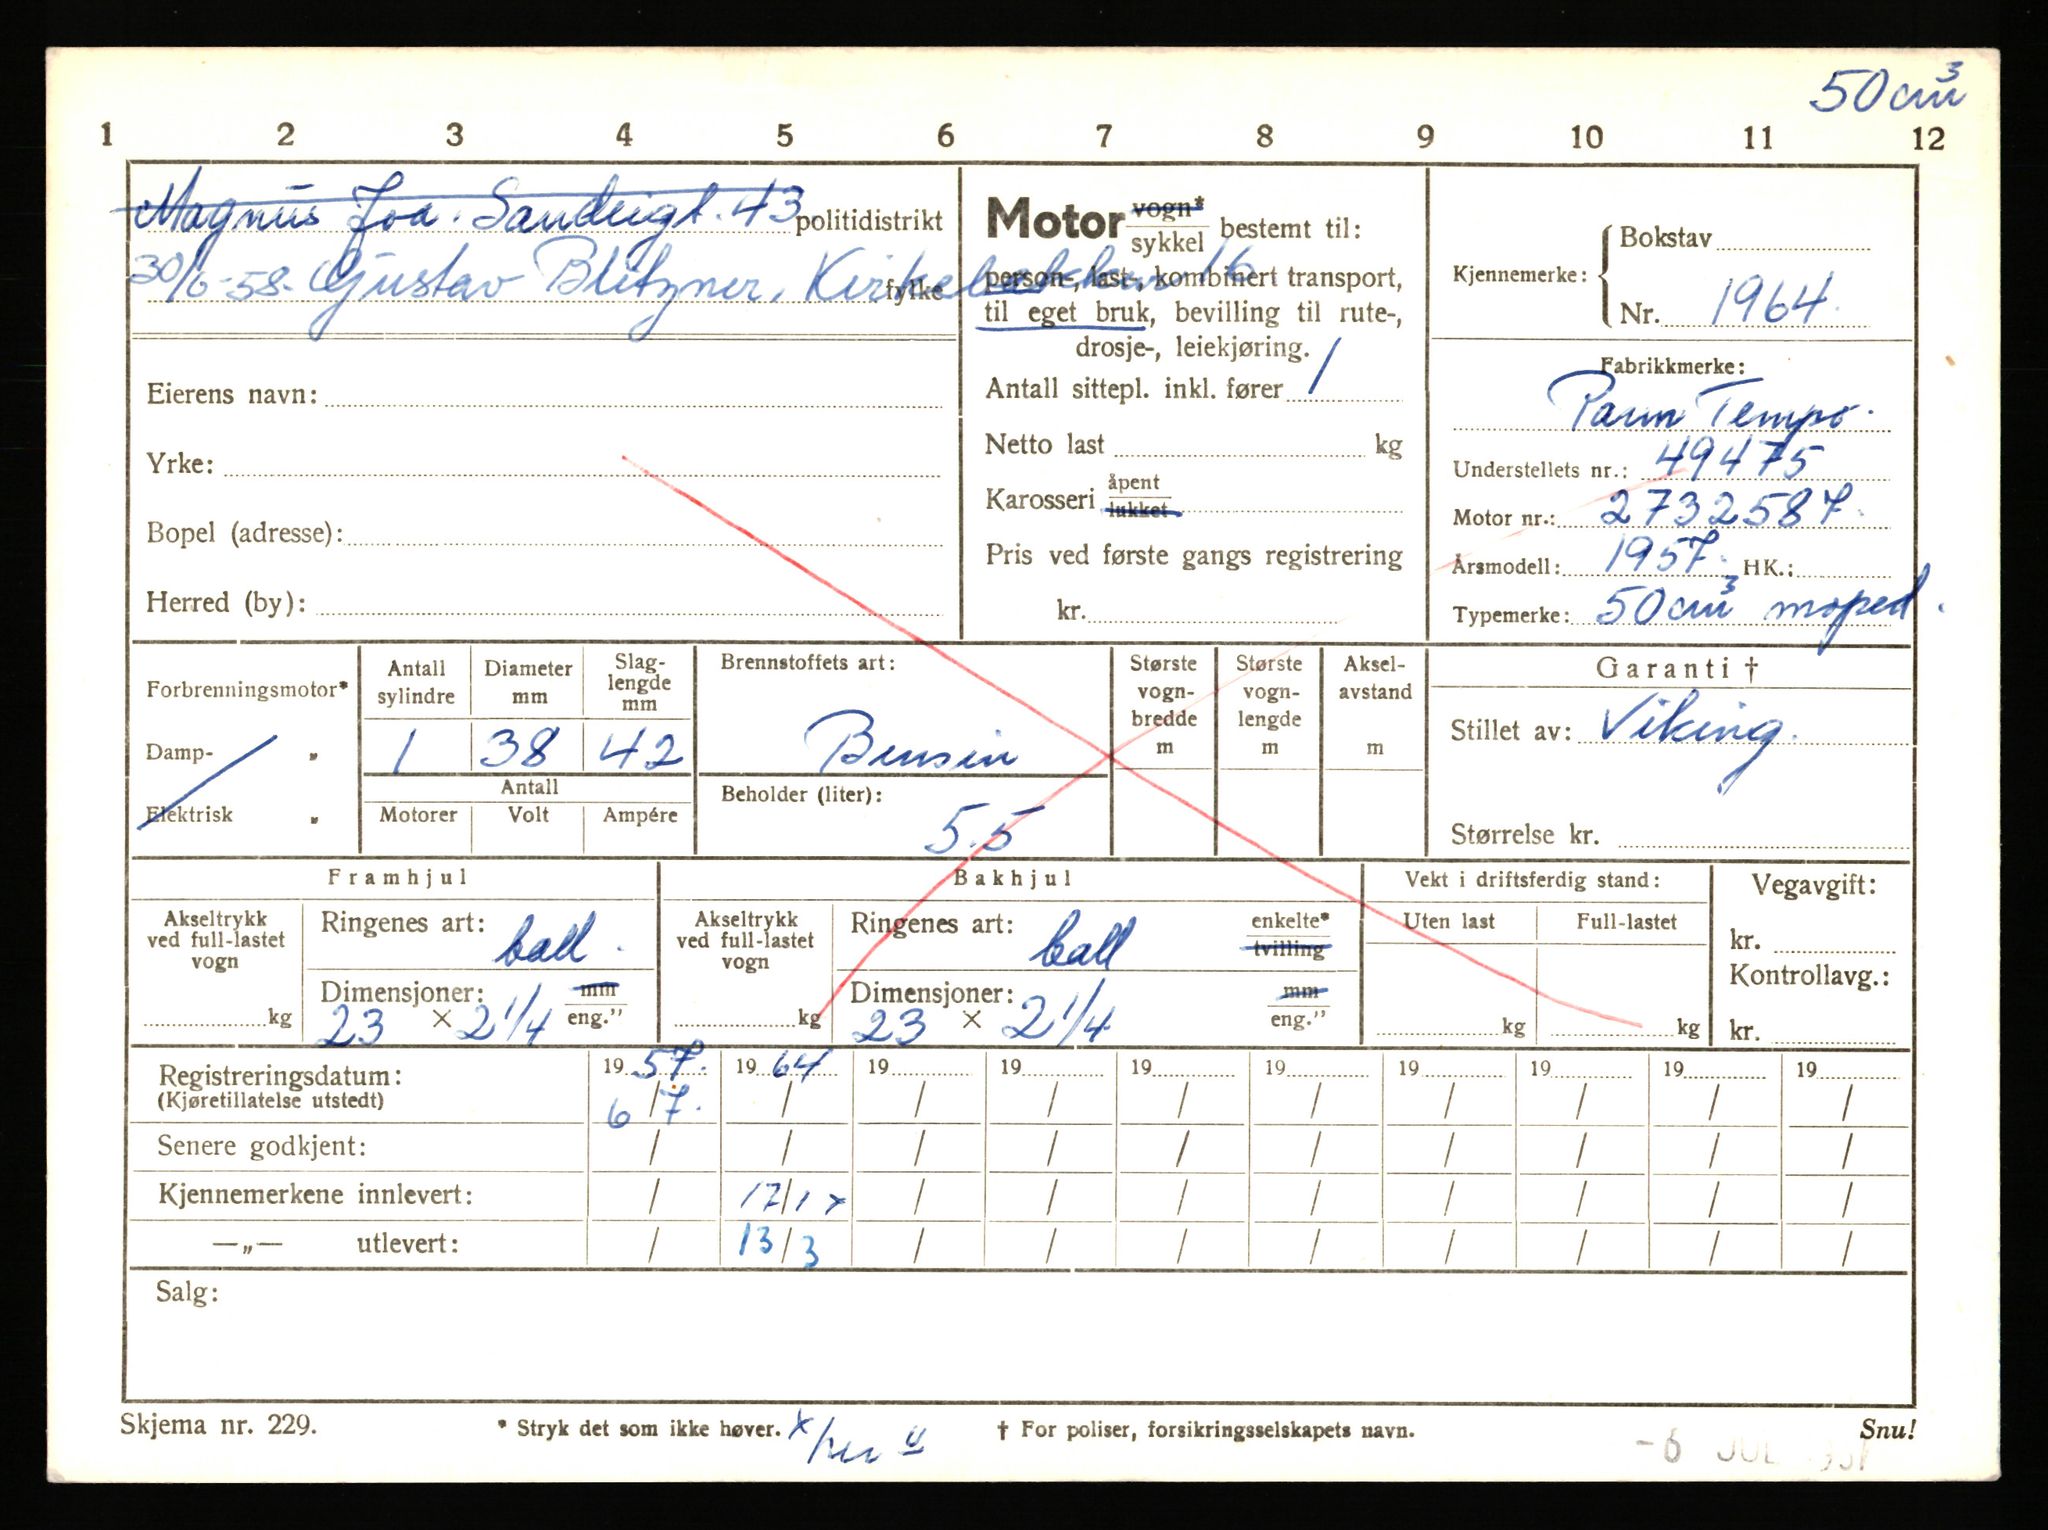 50 cm³
1 2 3 4 5 6 7 8 9 10 11 12
Magnus Joa. Sandeigt. 43 politidistrikt
30/6-58. Gustav Blitzner, 16
fylke
Eierens navn:
Yrke:
Bopel (adresse):
Herred (by):
Motor vogn* sykkel bestemt til:
person-, last-, kombinert transport,
til eget bruk, bevilling til rute-,
drosje-, leiekjøring.
Antall sittepl. inkl. fører 1
Netto last kg
Karosseri åpent lukket
Pris ved første gangs registrering
kr.
Kjennemerke: Bokstav
Nr. 1964.
Fabrikkmerke:
Parm Tempo.
Understellets nr.: 49475
Motor nr.: 2732587.
Årsmodell: 1957. HK.:
Typemerke: 50 cm³ moped.
Forbrenningsmotor*
Damp- „
Elektrisk „
Antall sylindre Diameter mm Slag-lengde mm
1 38 42
Antall
Motorer Volt Ampére
Brennstoffets art:
Bensin
Beholder (liter):
5.5
Største vogn-bredde m
Største vogn-lengde m
Aksel-avstand m
Garanti †
Stillet av: Viking.
Størrelse kr.
Framhjul
Akseltrykk ved full-lastet vogn
kg
Ringenes art: ball.
Dimensjoner: mm eng."
23 × 2 1/4
Bakhjul
Akseltrykk ved full-lastet vogn
kg
Ringenes art: ball enkelte* tvilling
Dimensjoner: mm eng."
23 × 2 1/4
Vekt i driftsferdig stand:
Uten last Full-lastet
kg kg
Vegavgift:
kr.
Kontrollavg.:
kr.
Registreringsdatum: 19 57. 19 64 19 19 19 19 19 19 19 19
(Kjøretillatelse utstedt) 6/7. / / / / / / / / /
Senere godkjent: / / / / / / / / / /
Kjennemerkene innlevert: / 17/1 x / / / / / / / /
—„— utlevert: / 13/3 / / / / / / / /
Salg:
Skjema nr. 229. * Stryk det som ikke høver. † For poliser, forsikringsselskapets navn. Snu!
-6 JUL